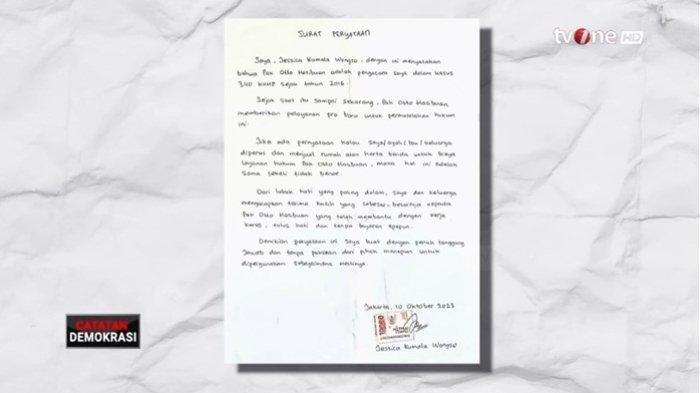 tvOne HD
SURAT PERYATAAN
Saya, Jessica Kumala Wongso, dengan ini menyatakan
bahwa Pak Otto Hasibuan adalah pengacara saya dalam kasus
340 KUHP sejak tahun 2016.
Sejak saat itu sampai sekarang, Pak Otto Hasibuan
memberikan pelayanan pro bono untuk permasalahan hukum
ini.
Jika ada pernyataan kalau saya/ayah/ibu/keluarga
diperas dan menjual rumah atau harta benda untuk biaya
layanan hukum Pak Otto Hasibuan, maka hal ini adalah
sama sekali tidak benar.
Dari lubuk hati yang paling dalam, saya dan keluarga
mengucapkan terima kasih yang sebesar-besarnya kepada
Pak Otto Hasibuan yang telah membantu dengan kerja
keras, tulus hati dan tanpa bayaran apapun.
Demikian peryataan ini saya buat dengan penuh tanggung
jawab dan tanpa paksaan dari pihak manapun untuk
dipergunakan sebagaimana mestinya.
Jakarta, 10 Oktober 2023
10000
Jessica Kumala Wongso
CATATAN
DEMOKRASI